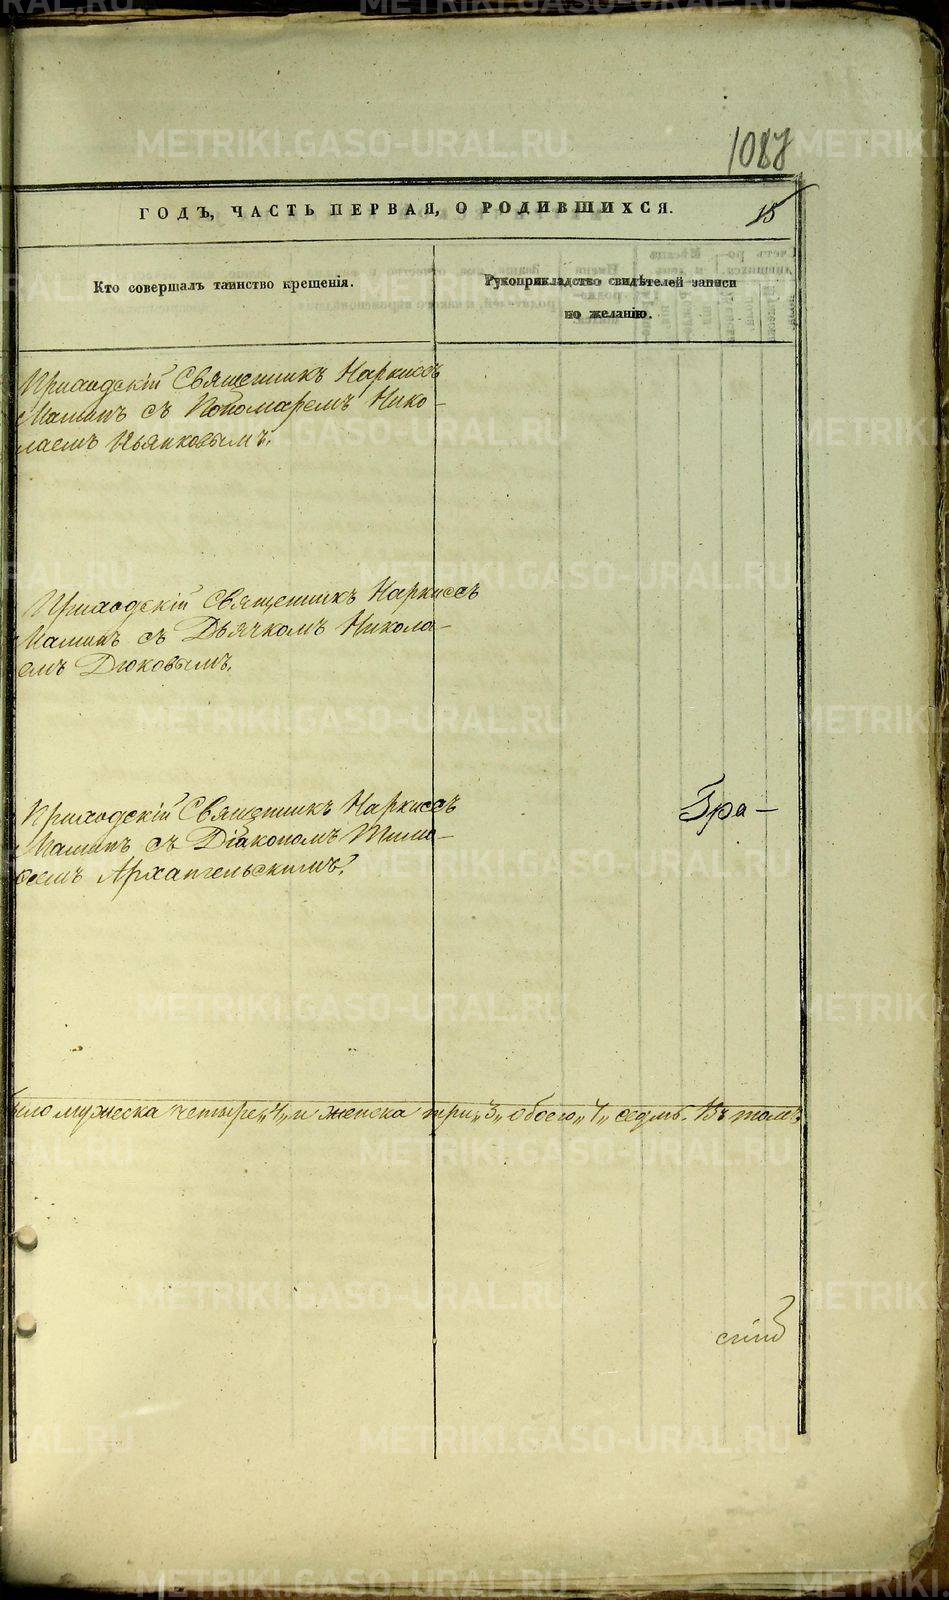 1087
ГОДЪ, ЧАСТЬ ПЕРВАЯ, О РОДИВШИХСЯ.
15
Кто совершалъ таинство крещенія.
Рукоприкладство свидѣтелей записи
по желанію.
Приходскій Священникъ Наркиссъ
Маминъ съ Пономаремъ Нико-
лаемъ Пьянковымъ.
Приходскій Священникъ Наркиссъ
Маминъ съ Дьячкомъ Никола-
емъ Дюковымъ.
Приходскій Священникъ Наркиссъ
Маминъ съ Діакономъ Тимо-
ѳеемъ Архангельскимъ.
Гра-
было мужеска четыре „4„ и женска три „3„ обоего „7„ седмь. Въ томъ
METRIKI.GASO-URAL.RU